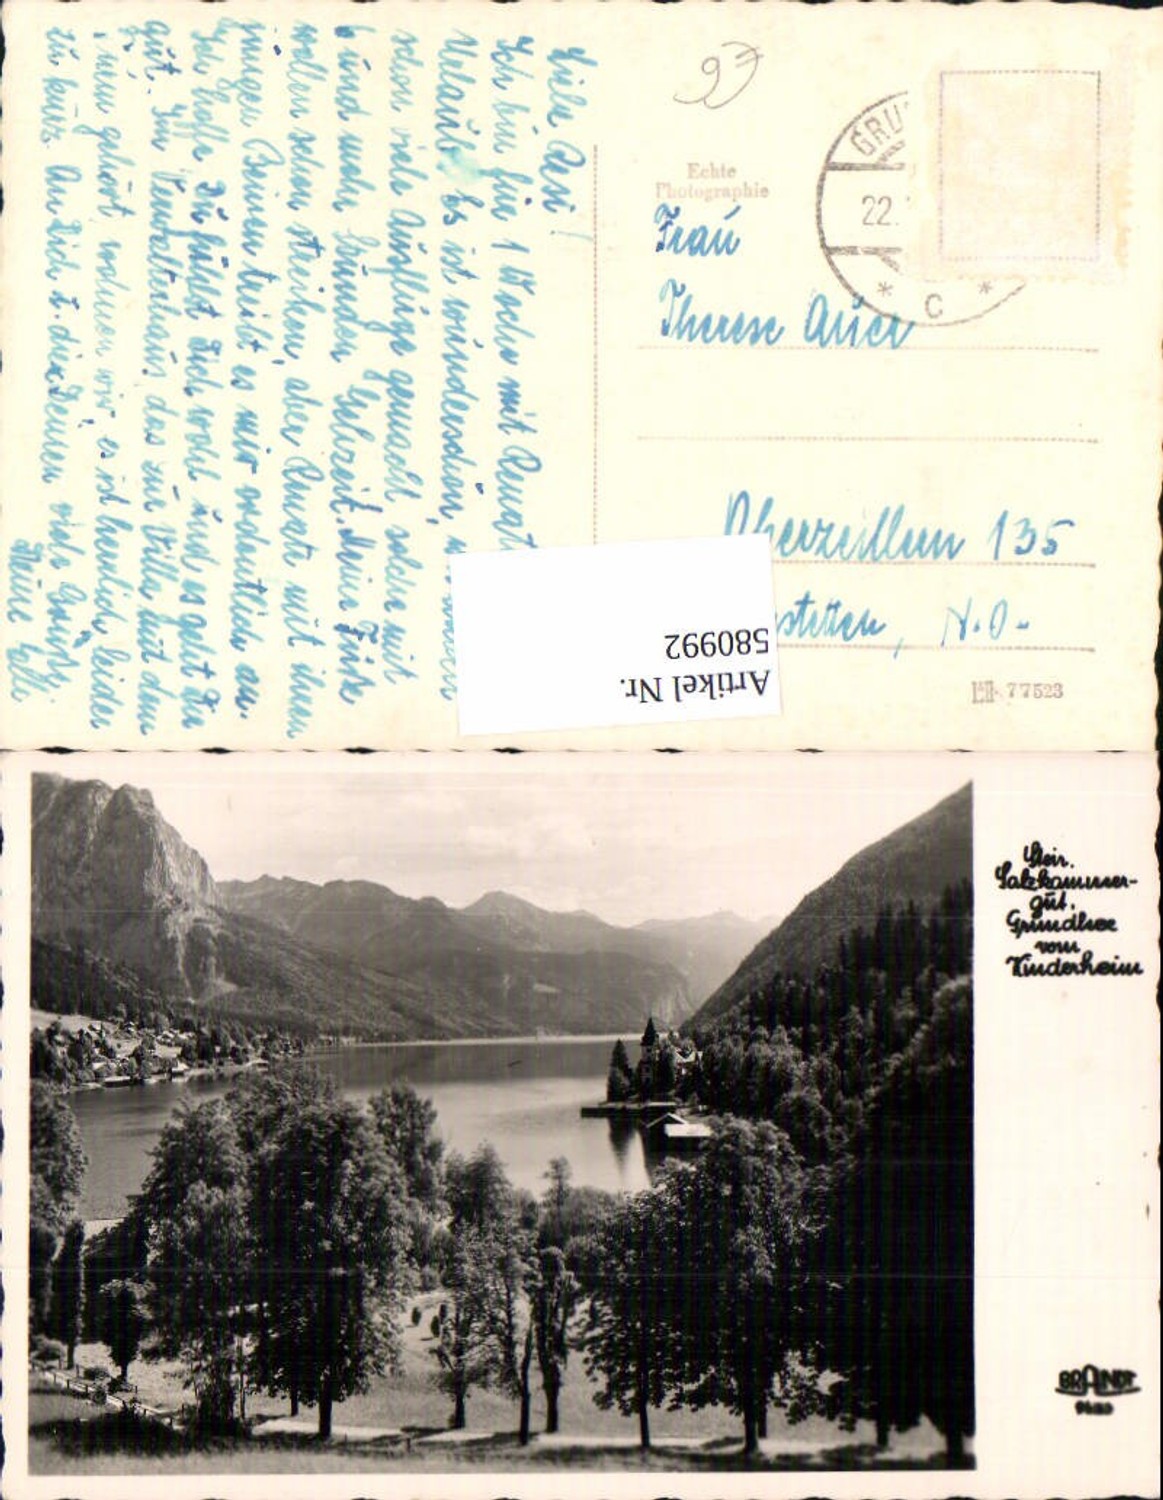 Liebe Resi!
Ich bin für 1 Woche mit Renate
Urlaub. Es ist wunderschön,
schon viele Ausflüge gemacht solche mit
6 und mehr Stunden Gehzeit. Meine Füße
wollen schon streiken, aber Renate mit ihren
jungen Beinen treibt es mir ordentlich an.
Ich hoffe Du fühlst Dich wohl und es geht Dir
gut. Im Verwalterhaus das zur Villa mit dem
Turm gehört wohnen wir, es ist herrlich, leider
zu kurz. An Dich u. die Deinen viele Grüße,
Deine Elli
Echte
Photographie
GRU
22.
* C *
Frau
Therese Auer
Oberzeillern 135
stetten, N.Ö.
77523
Artikel Nr.
580992
Steir.
Salzkammer-
gut.
Grundlsee
vom
Kinderheim
BRANDT